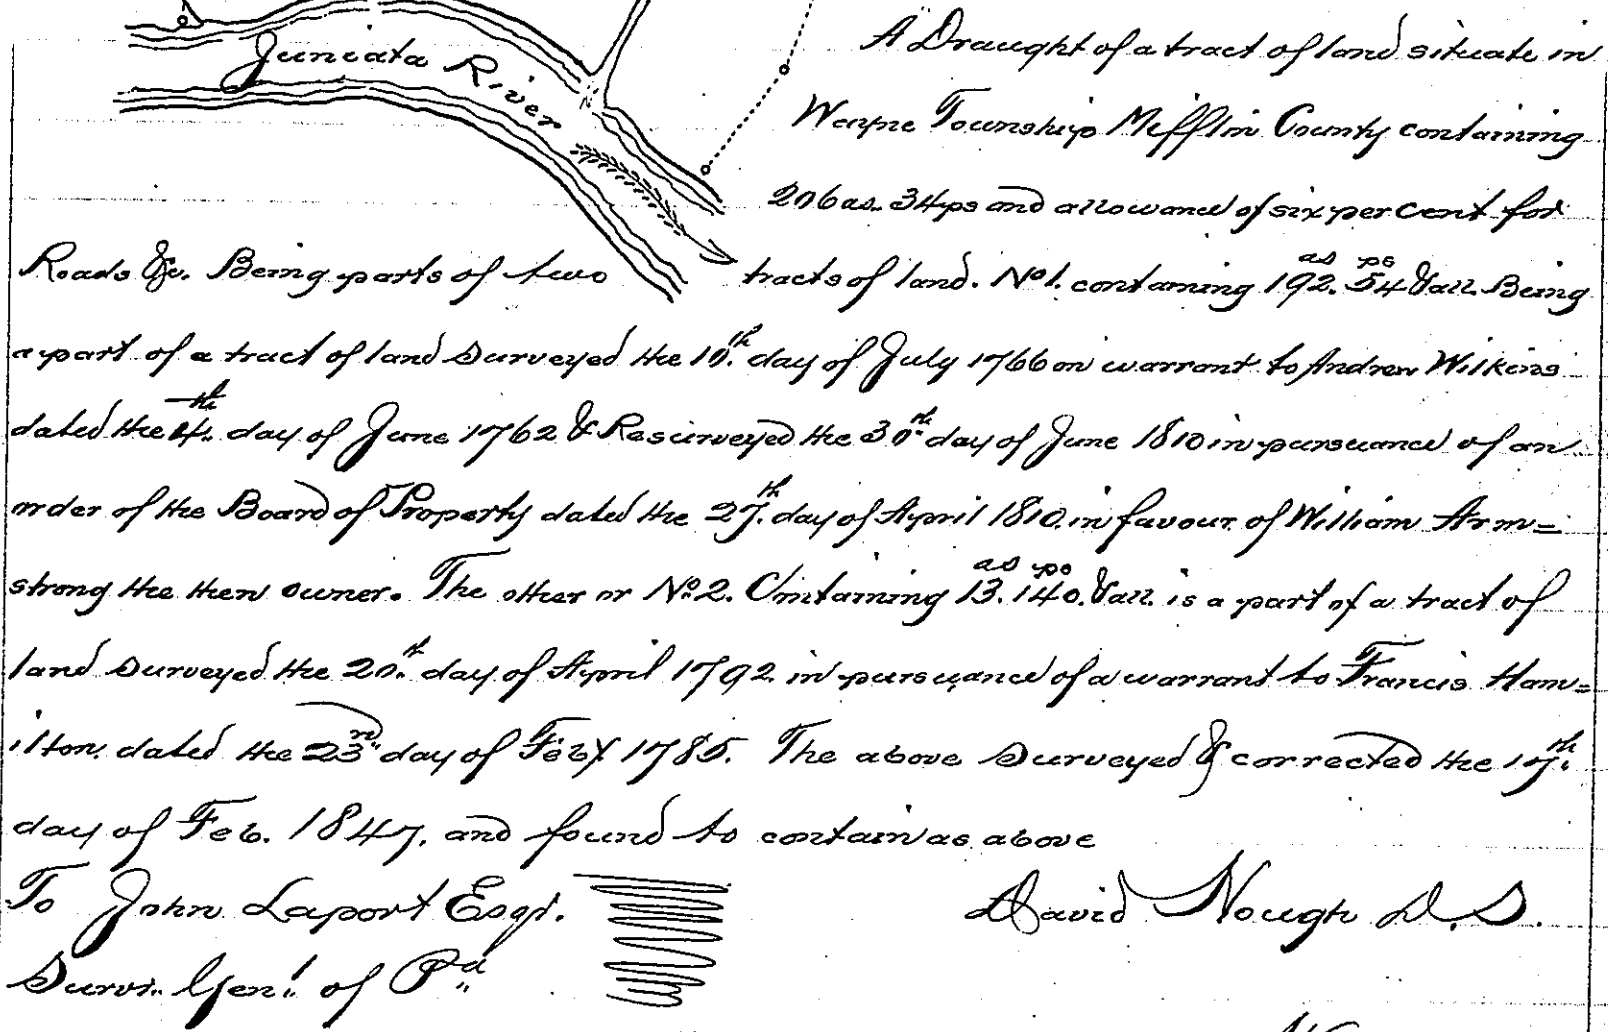 Juniata River
A Draught of a tract of land situate in
Wayne Township Mifflin County containing
206 as. 34 ps and allowance of six per cent for
Roads &c. Being parts of two tracts of land. No 1. containing 192. as 54 ps & all. Being
a part of a tract of land surveyed the 10th. day of July 1766 on warrant to Andrew Wilkins
dated the 4th. day of June 1762 & Resurveyed the 30th. day of June 1810 in pursuance of an
order of the Board of Property dated the 27th. day of April 1810. in favour of William Arm=
strong the then owner. The other or No. 2. Containing 13. as 140. po & all. is a part of a tract of
land surveyed the 20th. day of April 1792 in pursuance of a warrant to Francis Ham=
ilton. dated the 23rd day of Feby 1785. The above Surveyed & corrected the 17th.
day of Feb. 1847. and found to contain as above
To John Laport Esqr. David Nough D. S.
Survr. Genl. of Pa